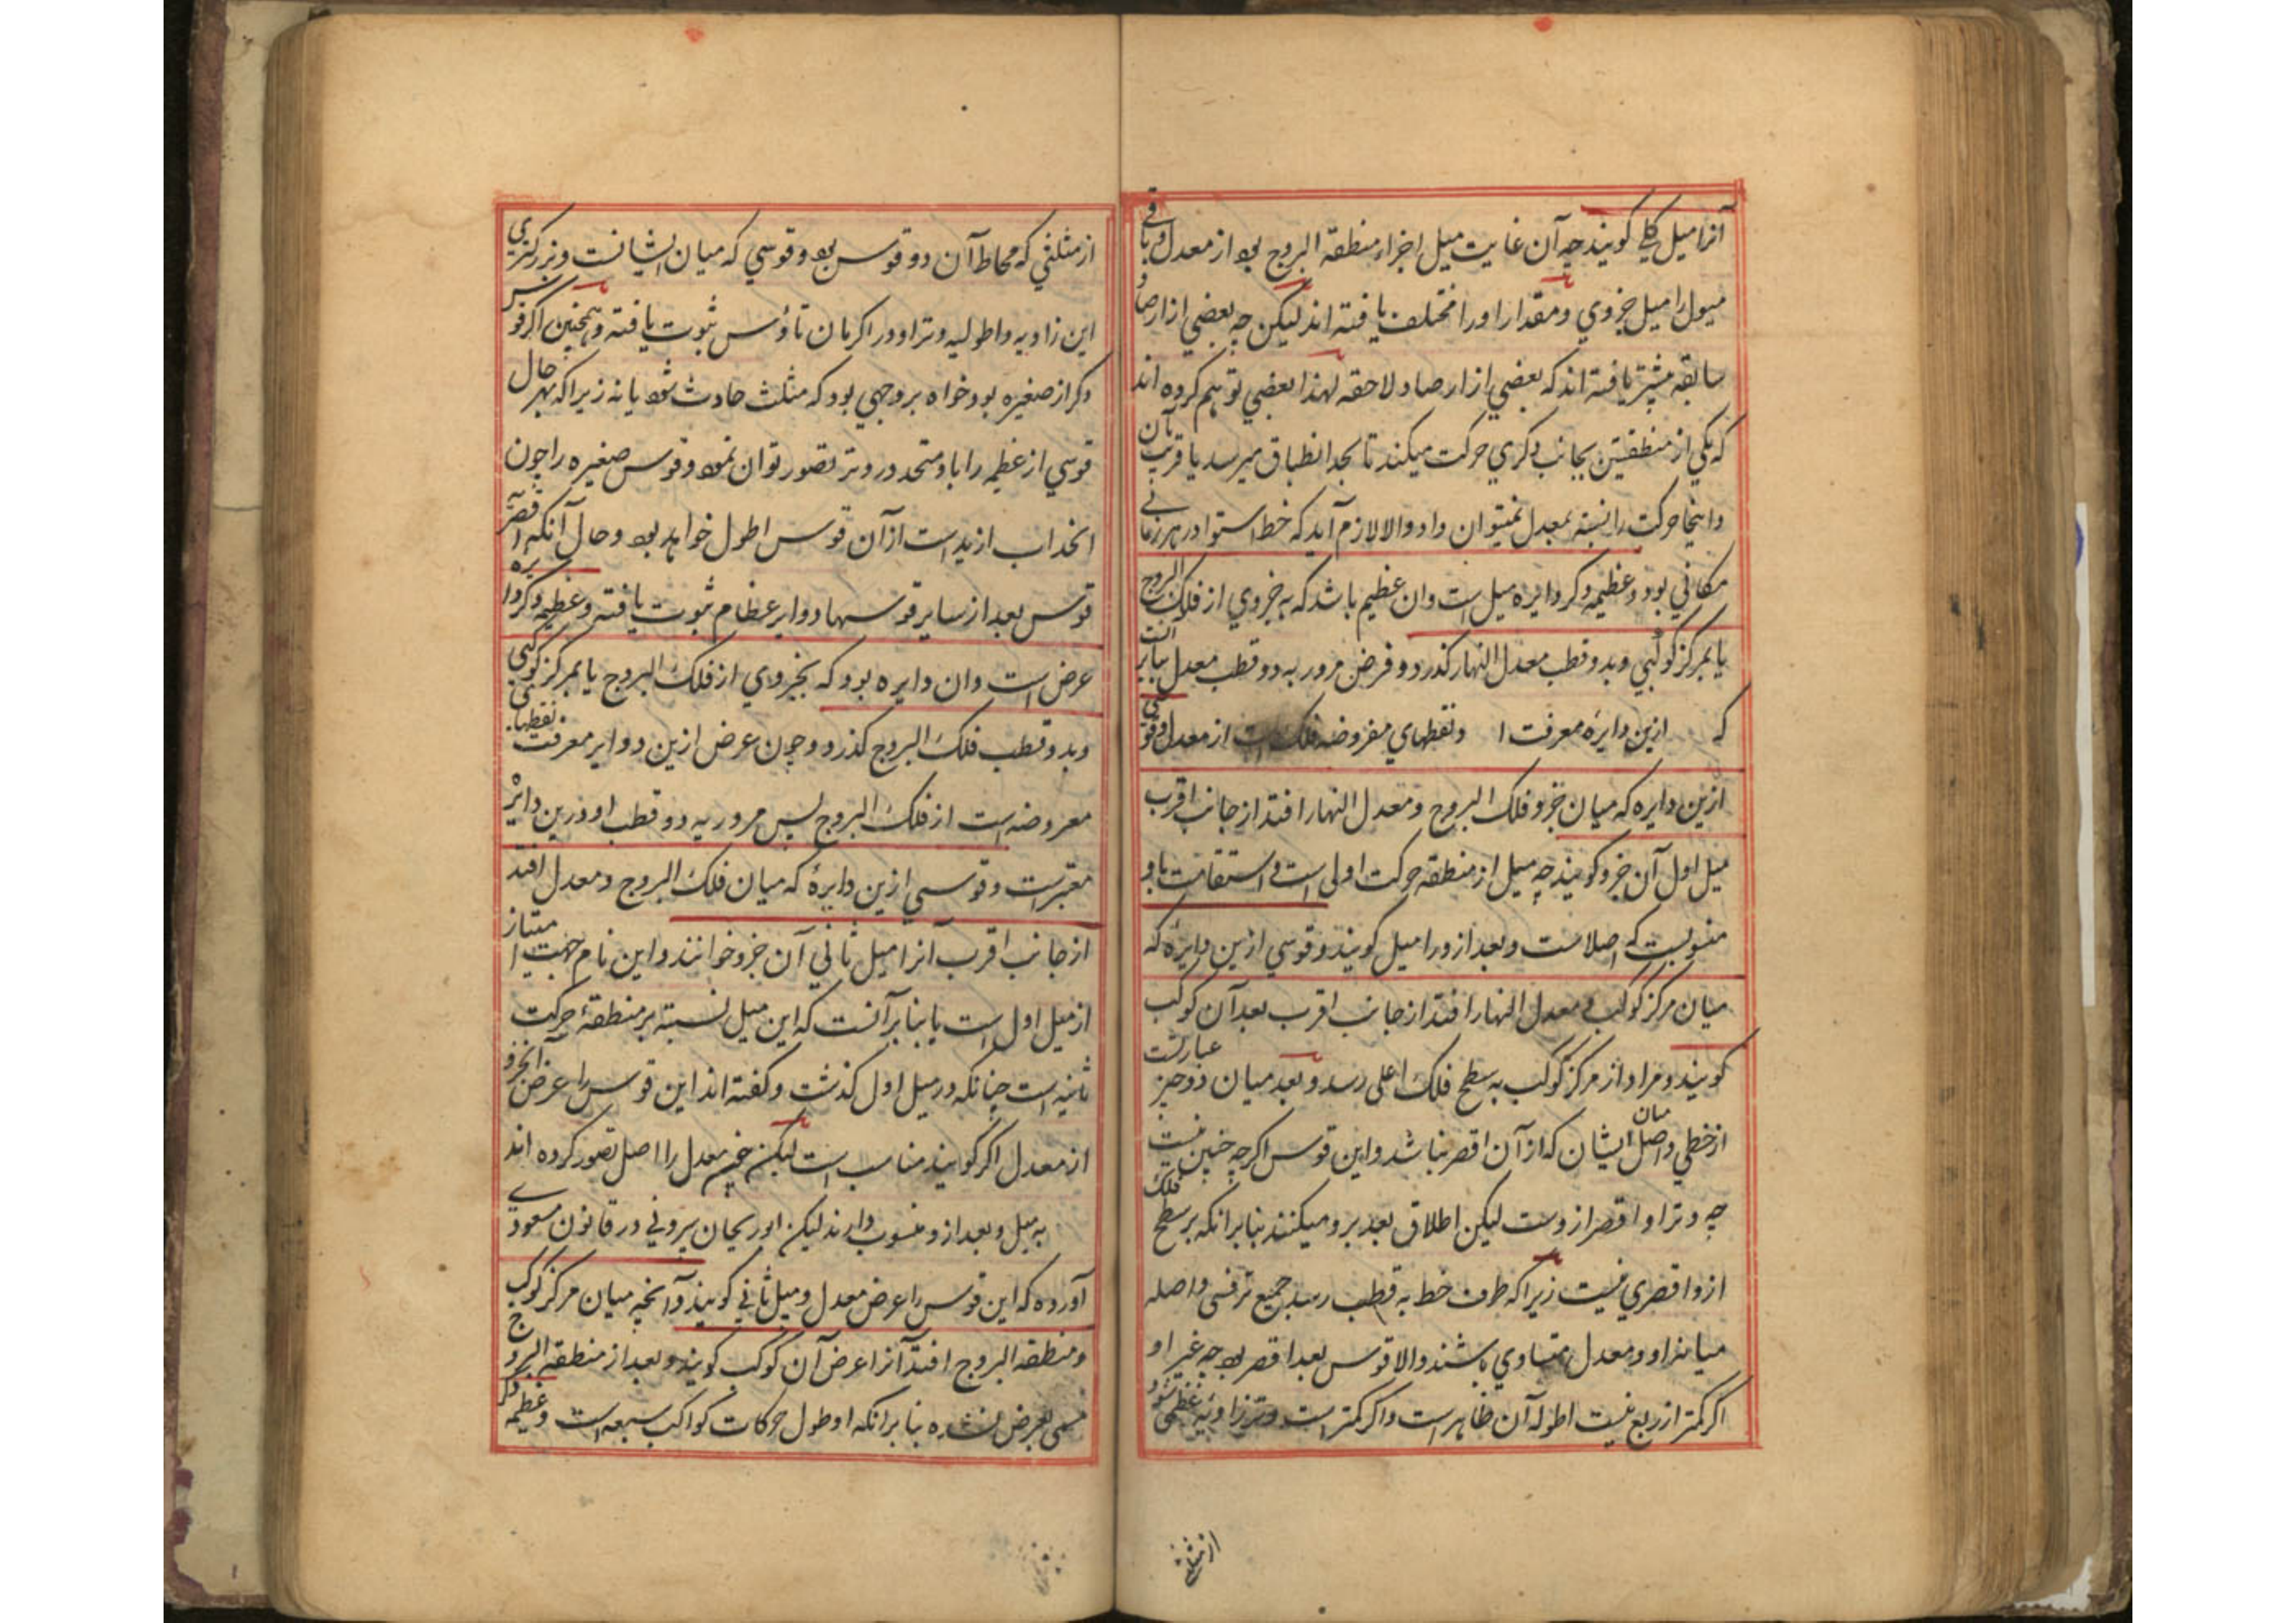 آنرا میل کلی گویند چه آن غایت میل اجزاء منطقة البروج بود از معدل و باقی
میول را میل جزوی و مقدار او را مختلف یافته اند لیکن چه بعضی از ارصاد
سابقه بیشتر یافته اند که بعضی از ارصاد لاحقه لهذا بعضی توهم کرده اند
که یکی از منطقتین بجانب دکری حرکت میکند تا بحد انطباق میرسد یا قرب بآن
و اینجا حرکت را نسبة بمعدل نمیتوان داد و الا لازم آید که خط استوا در هر زمانی
مکانی بود و عظیمه دکر دایره میل است و ان عظیم باشد که به جزوی از فلک البروج
یا بمرکز کوکبی و بدو قطب معدل النهار کذرد و فرض مرور به دو قطب معدل بنابر آنست
که ازین دایره معرفت ا و نقطهای مفروضه فلک است از معدل و قوسی
ازین دایره که میان جزو فلک البروج و معدل النهار افتد از جانب اقرب
میل اول آن جزو گویند چه میل از منطقه حرکت اولی است و استقامت باو
منسوبست که اصلاست و بعد ازو را میل گویند و قوسی ازین دایره که
میان مرکز کوکب و معدل النهار افتد از جانب اقرب بعد آن کوکب
گویند و مراد از مرکز کوکب به سطح فلک اعلی رسد و بعد میان دو چیز عبارتست
از خطی واصل میان ایشان که از آن اقصر نباشد و این قوس اکرچه چنین نیست
چه وتر او اقصر ازوست لیکن اطلاق بعد برو میکنند بنابر انکه بر سطح فلک
ازو اقصری نیست زیرا که طرف خط به قطب رسد جمیع قسی واصله
میانه او و معدل متساوی باشند و الا قوس بعد اقصر بود چه غیر او
اکر کمتر از ربع نیست اطوله آن ظاهر است و اکر کمتر است وتر زاویه عظمی شود
از مثلثی
از مثلثی که محاط آن دو قوس بود و قوسی که میان ایشانست و بزرکتری
این زاویه و اطولیه وتر او در اکرمان تاؤس ثبوت یافته و همچنین اکر قوسی
دکر از صغیره بود خواه بر وجهی بود که مثلث حادث شود یا نه زیرا که بهر حال
قوسی از عظیمه را با و متحد در وتر تصور توان نمود و قوس صغیره را چون
انحداب ازید است از آن قوس اطول خواهد بود و حال آنکه اقصریت
قوس بعد از سایر قوسها دوایر عظام ثبوت یافته و عظیمه دکر دایره
عرض است و ان دایره بود که بجزوی از فلک البروج یا بمرکز کوکبی
و بدو قطب فلک البروج کذرد و چون عرض ازین دوایر معرفت نقطهای
معروضه است از فلک البروج پس مرور به دو قطب او درین دایره
معتبر است و قوسی ازین دایرۀ که میان فلک البروج و معدل افتد
از جانب اقرب آنرا میل ثانی آن جزو خوانند و این نام جهت امتیاز
از میل اول است یا بنابر آنست که این میل نسبة بر منطقۀ حرکت
ثانیه است چنانکه در میل اول کذشت و کفته اند این قوس را عرض آنجزو
از معدل اکر گویند مناسب است لیکن چون معدل را اصل تصور کرده اند
به میل و بعد ازو منسوب دارند لیکن ابوریحان بیرونی در قانون مسعودی
آورده که این قوس را عرض معدل و میل ثانی گویند و آنچه میان مرکز کوکب
و منطقة البروج افتد آنرا عرض آن کوکب گویند و بعد از منطقة البروج
مسمی بعرض شده بنابر انکه او طول حرکات کواکب سبعه است و عظیمه دکر